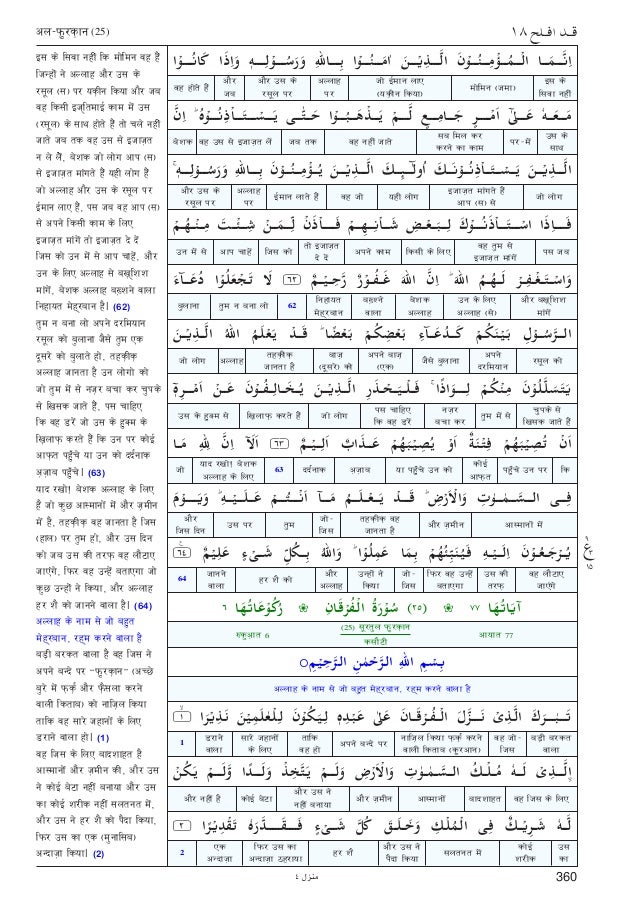 अल-फ़ुरक़ान (25)
قد افلح ١٨
इस के सिवा नहीं कि मोमिन वह हैं
जिन्हों ने अल्लाह और उस के
रसूल (स) पर यक़ीन किया और जब
वह किसी इज्तिमाई काम में उस
(रसूल) के साथ होते हैं तो चले नहीं
जाते जब तक वह उस से इजाज़त
न ले लें, बेशक जो लोग आप (स)
से इजाज़त मांगते हैं यही लोग हैं
जो अल्लाह और उस के रसूल पर
ईमान लाए हैं, पस जब वह आप (स)
से अपने किसी काम के लिए
इजाज़त मांगें तो इजाज़त दे दें
जिस को उन में से आप चाहें, और
उन के लिए अल्लाह से बख़्शिश
मांगें, बेशक अल्लाह बख़्शने वाला
निहायत मेह्रबान है। (62)
तुम न बना लो अपने दरमियान
रसूल को बुलाना जैसे तुम एक
दूसरे को बुलाते हो, तहक़ीक़
अल्लाह जानता है उन लोगों को
जो तुम में से नज़र बचा कर चुपके
से खिसक जाते हैं, पस चाहिए
कि वह डरें जो उस के हुक्म के
ख़िलाफ़ करते हैं कि उन पर कोई
आफ़त पहुँचे या उन को दर्दनाक
अज़ाब पहुँचे। (63)
याद रखो! बेशक अल्लाह के लिए
है जो कुछ आस्मानों में और ज़मीन
में है, तहक़ीक़ वह जानता है जिस
(हाल) पर तुम हो, और उस दिन
को जब उस की तरफ़ वह लौटाए
जाएंगे, फिर वह उन्हें बताएगा जो
कुछ उन्हों ने किया, और अल्लाह
हर शै को जानने वाला है। (64)
अल्लाह के नाम से जो बहुत
मेह्रबान, रहम करने वाला है
बड़ी बरकत वाला है वह जिस ने
अपने बन्दे पर “फ़ुरक़ान” (अच्छे
बुरे में फ़र्क़ और फ़ैसला करने
वाली किताब) को नाज़िल किया
ताकि वह सारे जहानों के लिए
डराने वाला हो। (1)
वह जिस के लिए बादशाहत है
आस्मानों और ज़मीन की, और उस
ने कोई बेटा नहीं बनाया और उस
का कोई शरीक नहीं सलतनत में,
और उस ने हर शै को पैदा किया,
फिर उस का एक (मुनासिब)
अन्दाज़ा किया। (2)
اِنَّمَا الْمُؤْمِنُوْنَ الَّذِيْنَ اٰمَنُوْا بِاللّٰهِ وَرَسُوْلِهٖ وَاِذَا كَانُوْا
वह होते हैं | और जब | और उस के रसूल पर | अल्लाह पर | जो ईमान लाए (यक़ीन किया) | मोमिन (जमा) | इस के सिवा नहीं
مَعَهٗ عَلٰٓى اَمْرٍ جَامِعٍ لَّمْ يَذْهَبُوْا حَتّٰى يَسْتَاْذِنُوْهُ ۭ اِنَّ
बेशक | वह उस से इजाज़त लें | जब तक | वह नहीं जाते | सब मिल कर करने का काम | पर-में | उस के साथ
الَّذِيْنَ يَسْتَاْذِنُوْنَكَ اُولٰٓئِكَ الَّذِيْنَ يُؤْمِنُوْنَ بِاللّٰهِ وَرَسُوْلِهٖ ۚ
और उस के रसूल पर | अल्लाह पर | ईमान लाते हैं | वह जो | यही लोग | इजाज़त मांगते हैं आप (स) से | जो लोग
فَاِذَا اسْتَاْذَنُوْكَ لِبَعْضِ شَاْنِهِمْ فَاْذَنْ لِّمَنْ شِئْتَ مِنْهُمْ
उन में से | आप चाहें | जिस को | तो इजाज़त दे दें | अपने काम | किसी के लिए | वह तुम से इजाज़त मांगें | पस जब
وَاسْتَغْفِرْ لَهُمُ اللّٰهَ ۭ اِنَّ اللّٰهَ غَفُوْرٌ رَّحِيْمٌ ٦٢ لَا تَجْعَلُوْا دُعَآءَ
बुलाना | तुम न बना लो | 62 | निहायत मेह्रबान | बख़्शने वाला | बेशक अल्लाह | उन के लिए अल्लाह (से) | और बख़्शिश मांगें
الرَّسُوْلِ بَيْنَكُمْ كَدُعَآءِ بَعْضِكُمْ بَعْضًا ۭ قَدْ يَعْلَمُ اللّٰهُ الَّذِيْنَ
जो लोग | अल्लाह | तहक़ीक़ जानता है | बाज़ (दूसरे) को | अपने बाज़ (एक) | जैसे बुलाना | अपने दरमियान | रसूल को
يَتَسَلَّلُوْنَ مِنْكُمْ لِوَاذًا ۚ فَلْيَحْذَرِ الَّذِيْنَ يُخَالِفُوْنَ عَنْ اَمْرِهٖٓ
उस के हुक्म से | ख़िलाफ़ करते हैं | जो लोग | पस चाहिए कि वह डरें | नज़र बचा कर | तुम में से | चुपके से खिसक जाते हैं
اَنْ تُصِيْبَهُمْ فِتْنَةٌ اَوْ يُصِيْبَهُمْ عَذَابٌ اَلِيْمٌ ٦٣ اَلَآ اِنَّ لِلّٰهِ مَا
जो | याद रखो! बेशक अल्लाह के लिए | 63 | दर्दनाक | अज़ाब | या पहुँचे उन को | कोई आफ़त | पहुँचे उन पर | कि
فِي السَّمٰوٰتِ وَالْاَرْضِ ۭ قَدْ يَعْلَمُ مَآ اَنْتُمْ عَلَيْهِ ۭ وَيَوْمَ
और जिस दिन | उस पर | तुम | जो-जिस | तहक़ीक़ वह जानता है | और ज़मीन | आस्मानों में
يُرْجَعُوْنَ اِلَيْهِ فَيُنَبِّئُهُمْ بِمَا عَمِلُوْا ۭ وَاللّٰهُ بِكُلِّ شَيْءٍ عَلِيْمٌ ٦٤
64 | जानने वाला | हर शै को | और अल्लाह | उन्हों ने किया | जो-जिस | फिर वह उन्हें बताएगा | उस की तरफ़ | वह लौटाए जाएंगे
اٰيَاتُهَا ٧٧ ❀ (٢٥) سُوْرَةُ الْفُرْقَانِ ❀ رُكُوْعَاتُهَا ٦
रुकुआत 6 | (25) सूरतुल फ़ुरक़ान कसौटी | आयात 77
بِسْمِ اللّٰهِ الرَّحْمٰنِ الرَّحِيْمِ ○
अल्लाह के नाम से जो बहुत मेह्रबान, रहम करने वाला है
تَبٰرَكَ الَّذِيْ نَزَّلَ الْفُرْقَانَ عَلٰى عَبْدِهٖ لِيَكُوْنَ لِلْعٰلَمِيْنَ نَذِيْرَا ١
1 | डराने वाला | सारे जहानों के लिए | ताकि वह हो | अपने बन्दे पर | नाज़िल किया फ़र्क़ करने वाली किताब (कुरआन) | वह जो-जिस | बड़ी बरकत वाला
الَّذِيْ لَهٗ مُلْكُ السَّمٰوٰتِ وَالْاَرْضِ وَلَمْ يَتَّخِذْ وَلَدًا وَّلَمْ يَكُنْ
और नहीं है | कोई बेटा | और उस ने नहीं बनाया | और ज़मीन | आस्मानों | बादशाहत | वह जिस के लिए
لَّهٗ شَرِيْكٌ فِي الْمُلْكِ وَخَلَقَ كُلَّ شَيْءٍ فَقَدَّرَهٗ تَقْدِيْرًا ٢
2 | एक अन्दाज़ा | फिर उस का अन्दाज़ा ठहराया | हर शै | और उस ने पैदा किया | सलतनत में | कोई शरीक | उस का
منزل ٤
360